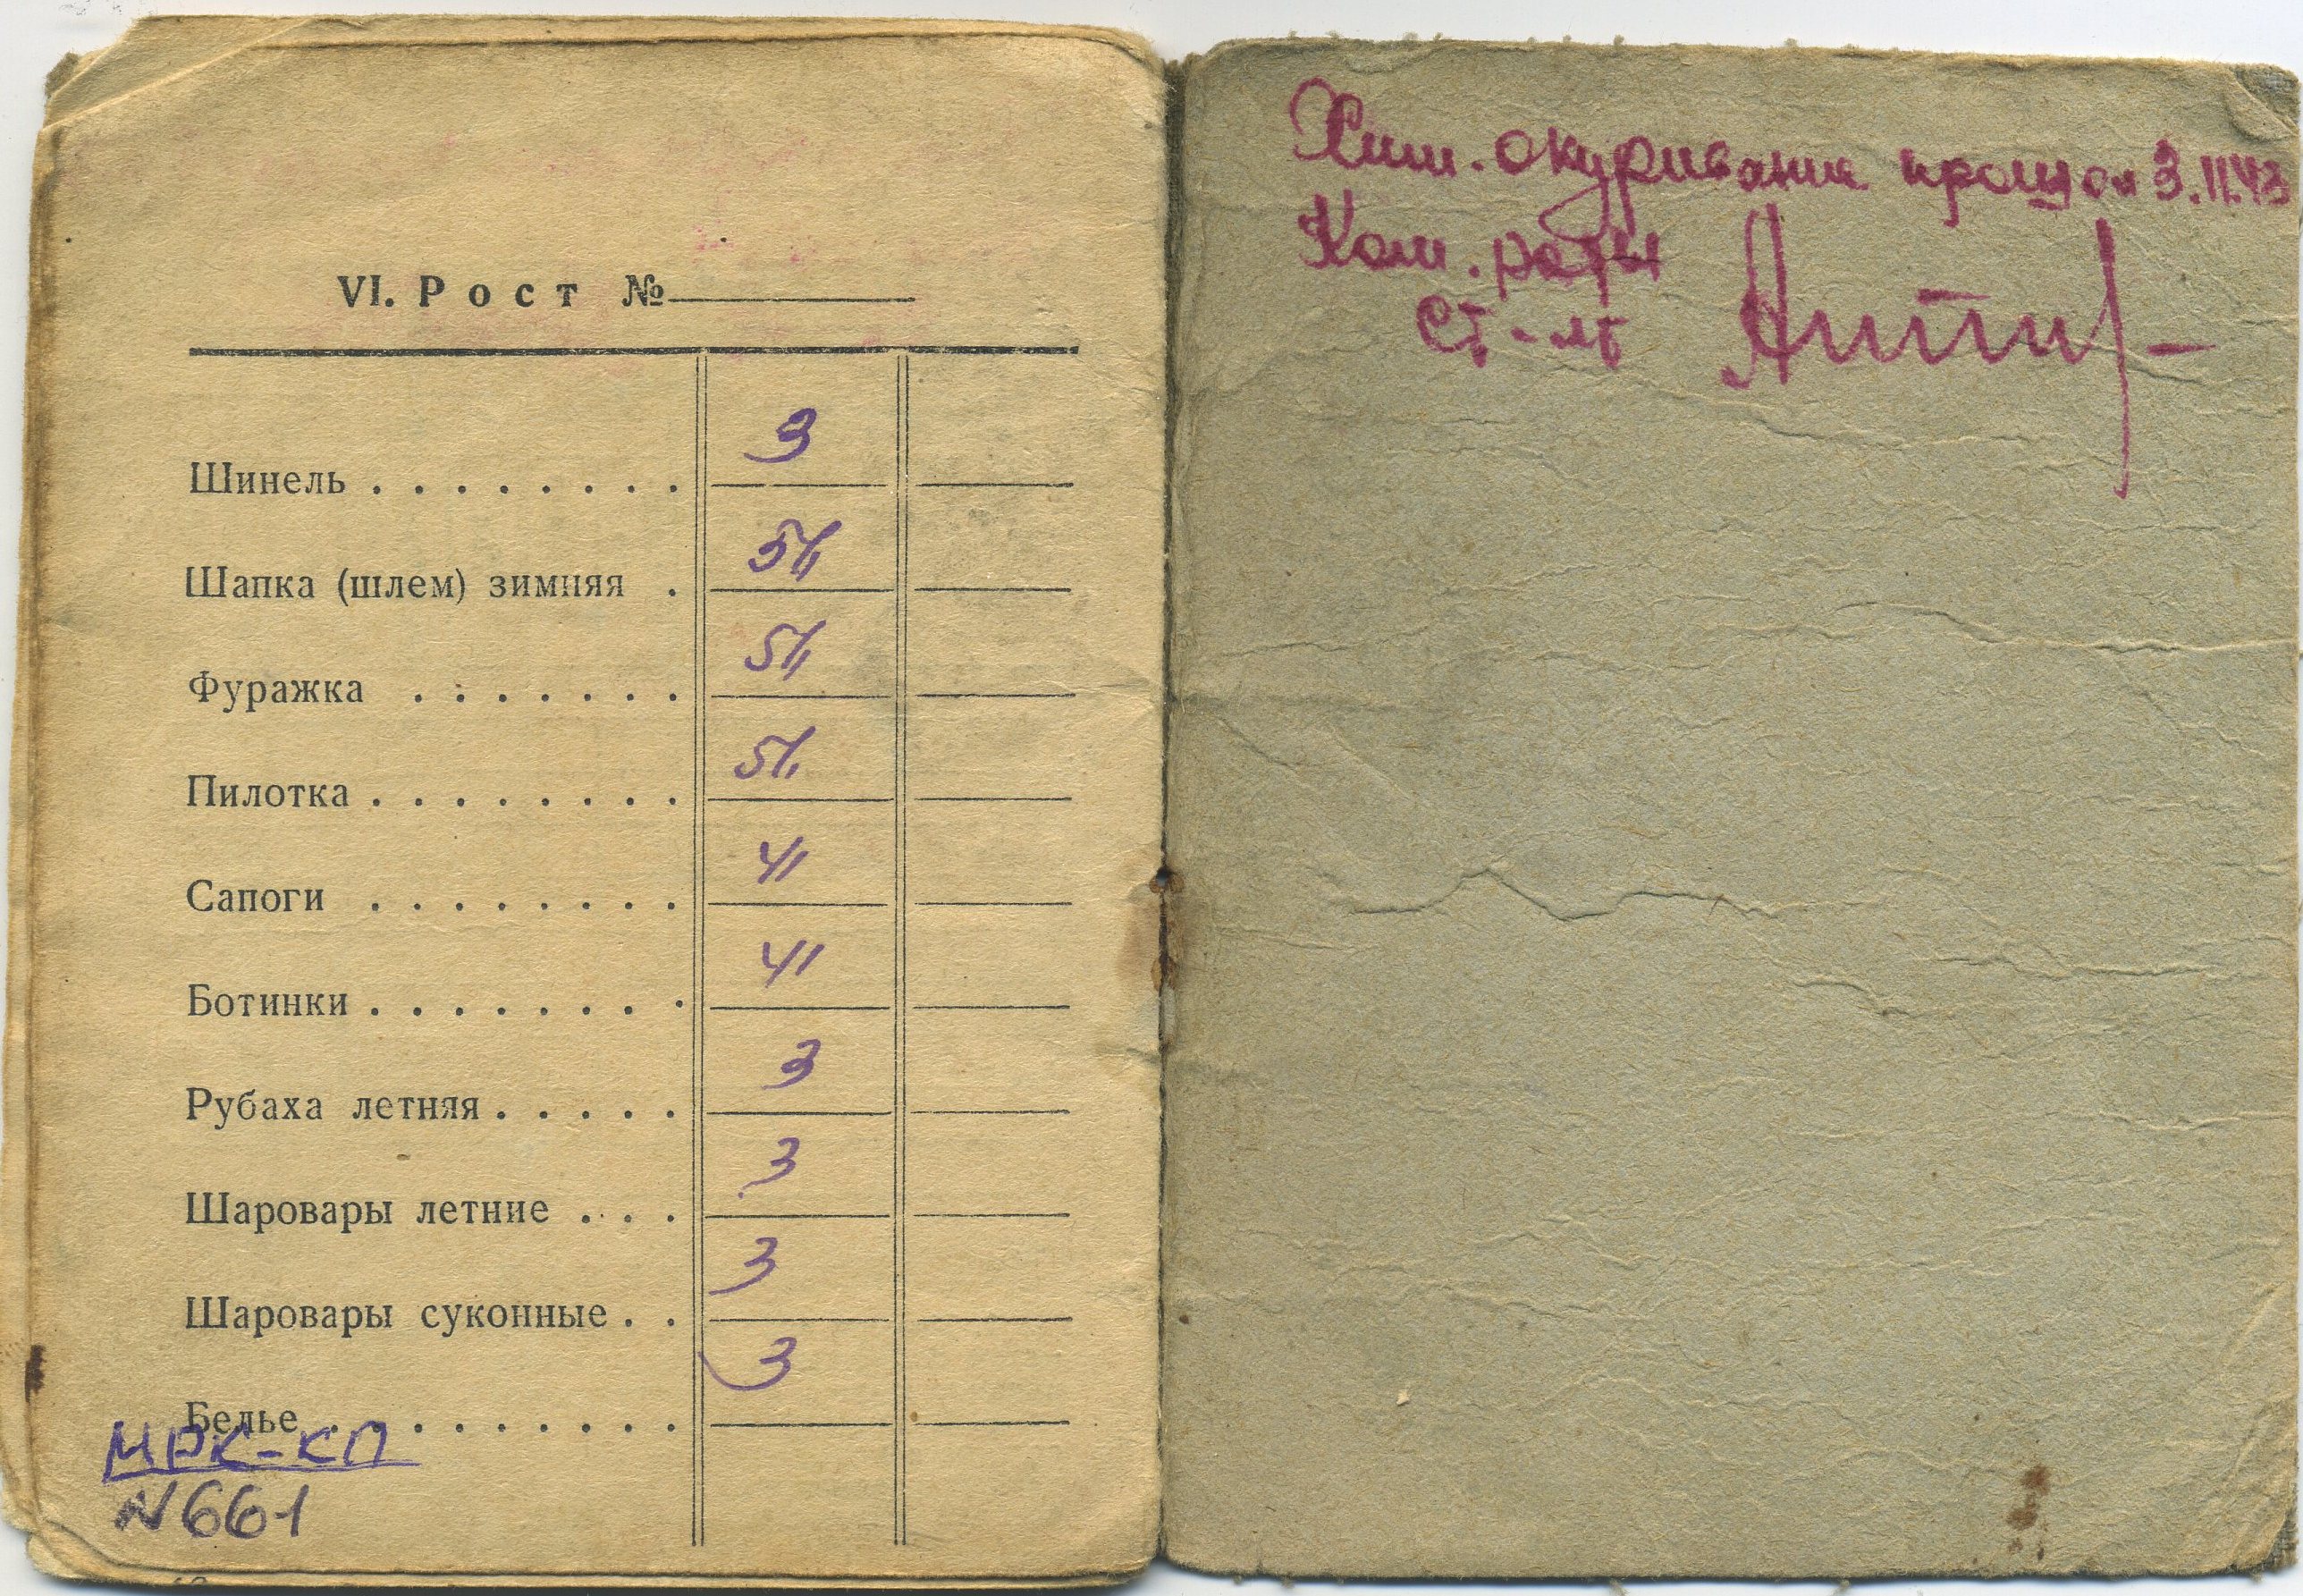 VI. Рост №
3
Шинель
54
Шапка (шлем) зимняя
54
Фуражка
54
Пилотка
41
Сапоги
41
Ботинки
3
Рубаха летняя
3
Шаровары летние
3
Шаровары суконные
3
Белье
МРК-КП
N661
Хим. окуривание прошел 3.11.43
Ком. роты
Ст-лт